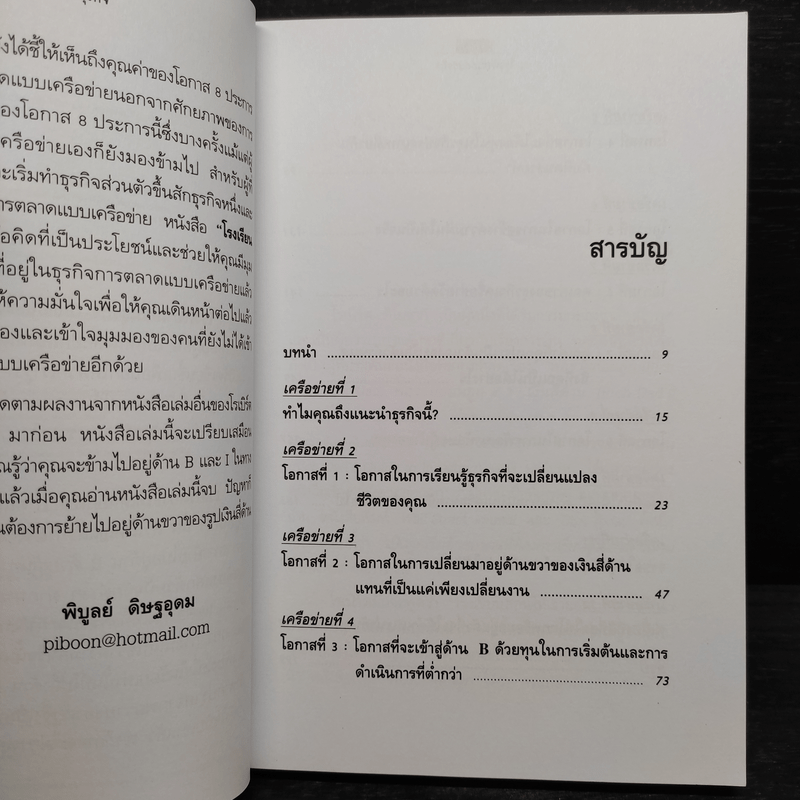 ังได้ชี้ให้เห็นถึงคุณค่าของโอกาส 8 ประการ
ดแบบเครือข่ายนอกจากศักยภาพของการ
องโอกาส 8 ประการนี้ซึ่งบางครั้งแม้แต่ผู้
ครือข่ายเองก็ยังมองข้ามไป สำหรับผู้ที่
ะเริ่มทำธุรกิจส่วนตัวขึ้นสักธุรกิจหนึ่งและ
ารตลาดแบบเครือข่าย หนังสือ "โรงเรียน
อคิดที่เป็นประโยชน์และช่วยให้คุณมีมุม
ที่อยู่ในธุรกิจการตลาดแบบเครือข่ายแล้ว
ห้ความมั่นใจเพื่อให้คุณเดินหน้าต่อไปแล้ว
องและเข้าใจมุมมองของคนที่ยังไม่ได้เข้า
บบเครือข่ายอีกด้วย
ดตามผลงานจากหนังสือเล่มอื่นของโรเบิร์ต
มาก่อน หนังสือเล่มนี้จะเปรียบเสมือน
ุณรู้ว่าคุณจะข้ามไปอยู่ด้าน B และ I ในทาง
แล้วเมื่อคุณอ่านหนังสือเล่มนี้จบ ปัญหาก็
นต้องการย้ายไปอยู่ด้านขวาของรูปเงินสี่ด้าน
พิบูลย์ ดิษฐอุดม
piboon@hotmail.com
สารบัญ
บทนำ ........ 9
เครือข่ายที่ 1
ทำไมคุณถึงแนะนำธุรกิจนี้? ........ 15
เครือข่ายที่ 2
โอกาสที่ 1 : โอกาสในการเรียนรู้ธุรกิจที่จะเปลี่ยนแปลง
ชีวิตของคุณ ........ 23
เครือข่ายที่ 3
โอกาสที่ 2 : โอกาสในการเปลี่ยนมาอยู่ด้านขวาของเงินสี่ด้าน
แทนที่เป็นแค่เพียงเปลี่ยนงาน ........ 47
เครือข่ายที่ 4
โอกาสที่ 3 : โอกาสที่จะเข้าสู่ด้าน B ด้วยทุนในการเริ่มต้นและการ
ดำเนินการที่ต่ำกว่า ........ 73